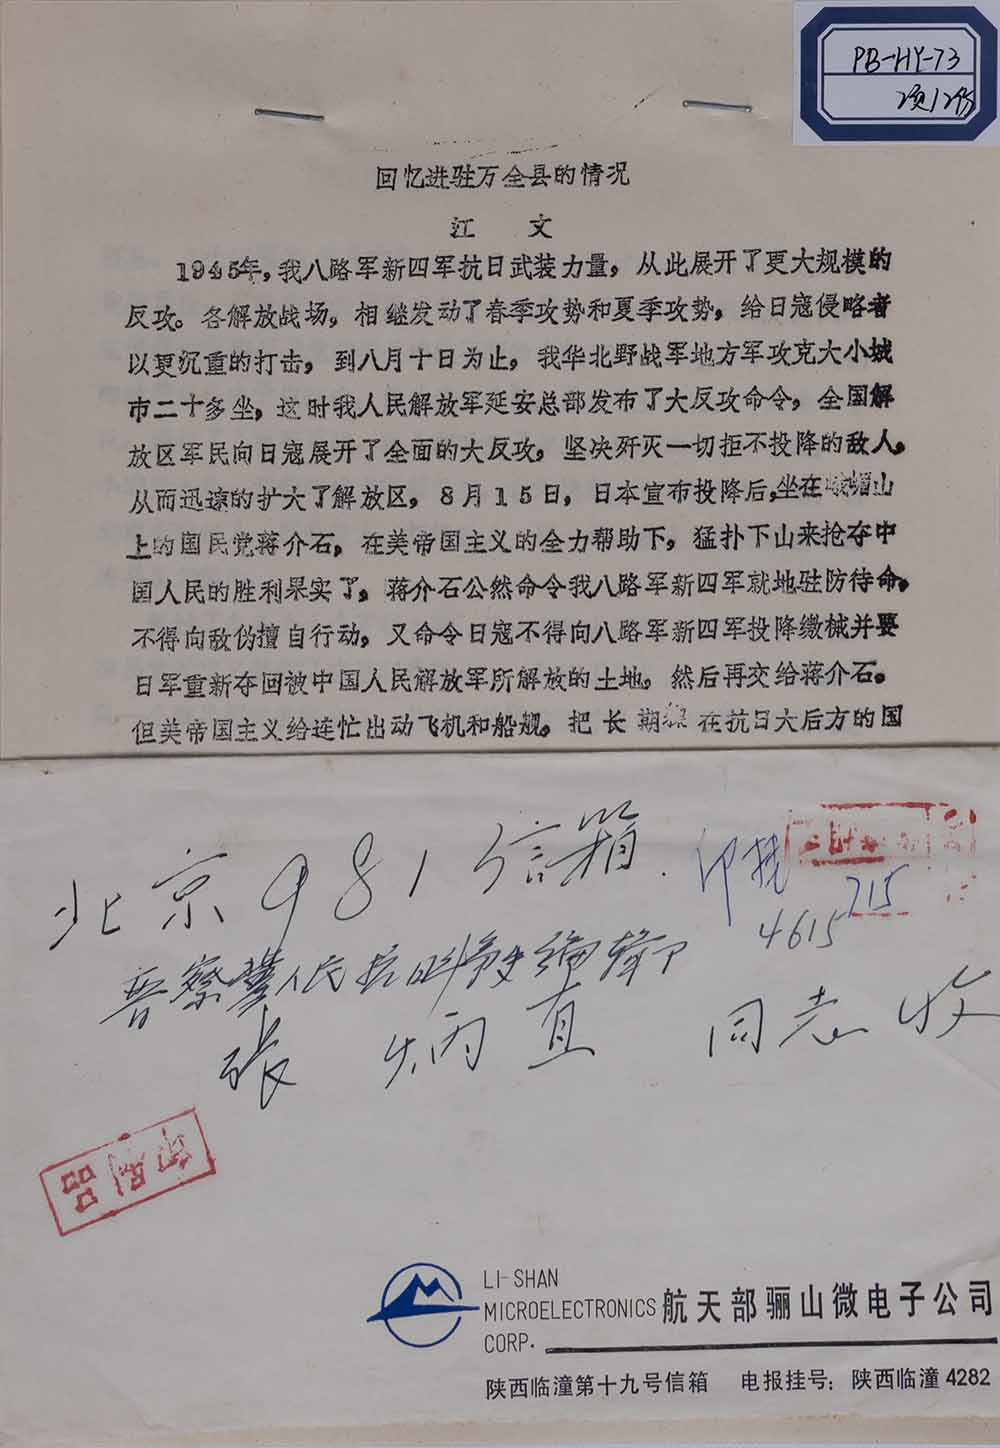 PB-HY-73
2页/2份
回忆进驻万全县的情况
江 文
1945年，我八路军新四军抗日武装力量，从此展开了更大规模的
反攻。各解放战场，相继发动了春季攻势和夏季攻势，给日寇侵略者
以更沉重的打击，到八月十日为止，我华北野战军地方军攻克大小城
市二十多坐，这时我人民解放军延安总部发布了大反攻命令，全国解
放区军民向日寇展开了全面的大反攻，坚决歼灭一切拒不投降的敌人，
从而迅速的扩大了解放区，8月15日，日本宣布投降后，坐在峨嵋山
上的国民党蒋介石，在美帝国主义的全力帮助下，猛扑下山来抢夺中
国人民的胜利果实了，蒋介石公然命令我八路军新四军就地驻防待命，
不得向敌伪擅自行动，又命令日寇不得向八路军新四军投降缴械并要
日军重新夺回被中国人民解放军所解放的土地，然后再交给蒋介石。
但美帝国主义给连忙出动飞机和船舰。把长期 在抗日大后方的国
北京981信箱
印挂
715
4615
晋察冀人民抗日斗争史编辑部
张炳直 同志收
LI-SHAN
MICROELECTRONICS
CORP.
航天部骊山微电子公司
陕西临潼第十九号信箱 电报挂号：陕西临潼4282